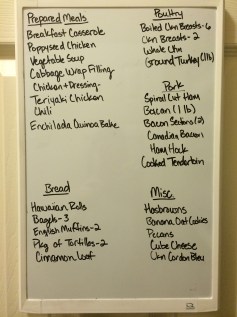 Prepared Meals
Breakfast Casserole
Poppyseed Chicken
Vegetable Soup
Cabbage Wrap Filling
Chicken + Dressing-
Teriyaki Chicken
Chili
Enchilada Quinoa Bake
Poultry
Boiled Ckn Breasts-6
Ckn Breasts-2
Whole Ckn
Ground Turkey (1lb)
Pork
Spiral Cut Ham
Bacon (1 lb)
Bacon Sections (2)
Canadian Bacon
Ham Hock
Cooked Tenderloin
Bread
Hawaiian Rolls
Bagels-3
English Muffins-2
Pkg of Tortillas-2
Cinnamon Loaf
Misc.
Hasbrowns
Banana Oat Cookies
Pecans
Cube Cheese
Ckn Cordon Bleu